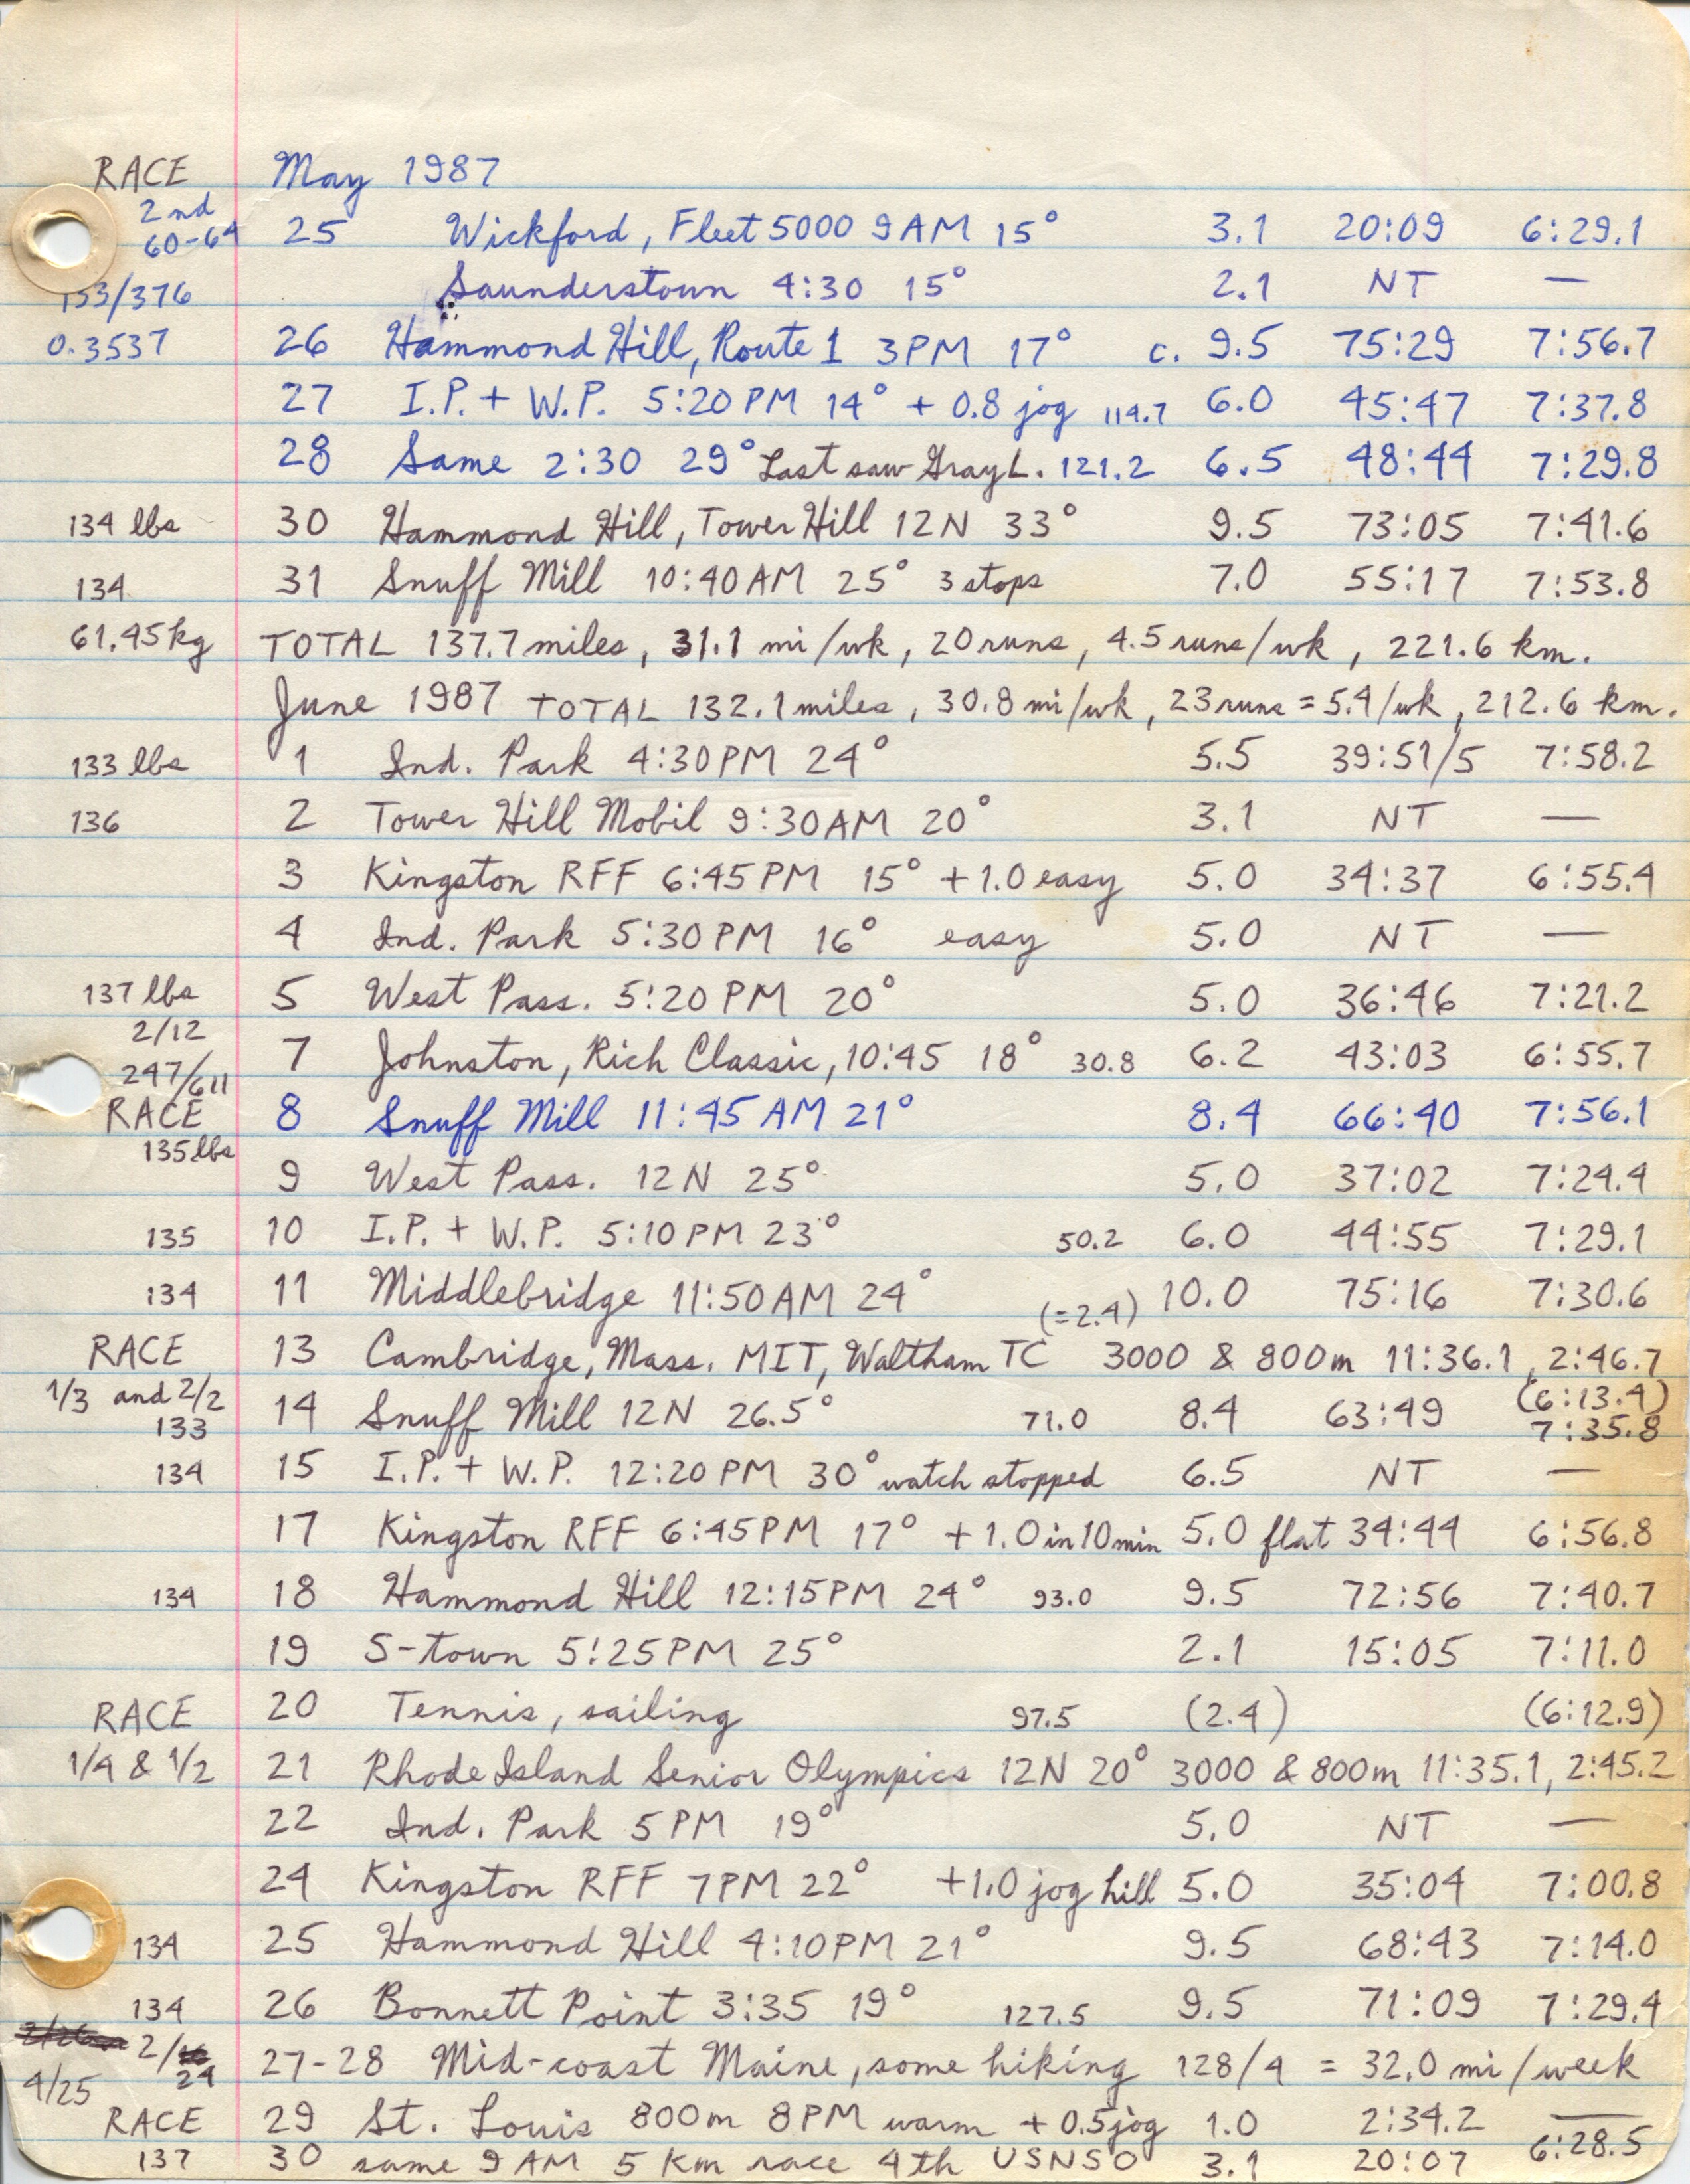 RACE May 1987
2nd
60-64 25 Wickford, Fleet 5000 9AM 15° 3.1 20:09 6:29.1
153/376 Saunderstown 4:30 15° 2.1 NT —
0.3537 26 Hammond Hill, Route 1 3PM 17° c. 9.5 75:29 7:56.7
27 I.P. + W.P. 5:20PM 14° + 0.8 jog 114.7 6.0 45:47 7:37.8
28 Same 2:30 29° Last saw Gray L. 121.2 6.5 48:44 7:29.8
134 lbs 30 Hammond Hill, Tower Hill 12N 33° 9.5 73:05 7:41.6
134 31 Snuff Mill 10:40AM 25° 3 stops 7.0 55:17 7:53.8
61.45kg TOTAL 137.7 miles, 31.1 mi/wk, 20 runs, 4.5 runs/wk, 221.6 km.
June 1987 TOTAL 132.1 miles, 30.8 mi/wk, 23 runs = 5.4/wk, 212.6 km.
133 lbs 1 Ind. Park 4:30PM 24° 5.5 39:51/5 7:58.2
136 2 Tower Hill Mobil 9:30AM 20° 3.1 NT —
3 Kingston RFF 6:45PM 15° +1.0 easy 5.0 34:37 6:55.4
4 Ind. Park 5:30PM 16° easy 5.0 NT —
137 lbs 5 West Pass. 5:20PM 20° 5.0 36:46 7:21.2
2/12
247/611 7 Johnston, Rich Classic, 10:45 18° 30.8 6.2 43:03 6:55.7
RACE 8 Snuff Mill 11:45AM 21° 8.4 66:40 7:56.1
135 lbs 9 West Pass. 12N 25° 5.0 37:02 7:24.4
135 10 I.P. + W.P. 5:10PM 23° 50.2 6.0 44:55 7:29.1
134 11 Middlebridge 11:50AM 24° 10.0 75:16 7:30.6
(=2.4)
RACE 13 Cambridge, Mass. MIT, Waltham TC 3000 & 800m 11:36.1, 2:46.7
1/3 and 2/2 (6:13.4)
133 14 Snuff Mill 12N 26.5° 71.0 8.4 63:49 7:35.8
134 15 I.P. + W.P. 12:20PM 30° watch stopped 6.5 NT —
17 Kingston RFF 6:45PM 17° +1.0 in 10 min 5.0 flat 34:44 6:56.8
134 18 Hammond Hill 12:15PM 24° 93.0 9.5 72:56 7:40.7
19 S-town 5:25PM 25° 2.1 15:05 7:11.0
RACE 20 Tennis, sailing 97.5 (2.4) (6:12.9)
1/4 & 1/2 21 Rhode Island Senior Olympics 12N 20° 3000 & 800m 11:35.1, 2:45.2
22 Ind. Park 5PM 19° 5.0 NT —
24 Kingston RFF 7PM 22° +1.0 jog hill 5.0 35:04 7:00.8
134 25 Hammond Hill 4:10PM 21° 9.5 68:43 7:14.0
134 26 Bonnett Point 3:35 19° 127.5 9.5 71:09 7:29.4
2/24 27-28 Mid-coast Maine, some hiking 128/4 = 32.0 mi/week
4/25
RACE 29 St. Louis 800m 8PM warm + 0.5 jog 1.0 2:34.2 —
137 30 same 9AM 5 Km race 4th USNSO 3.1 20:07 6:28.5